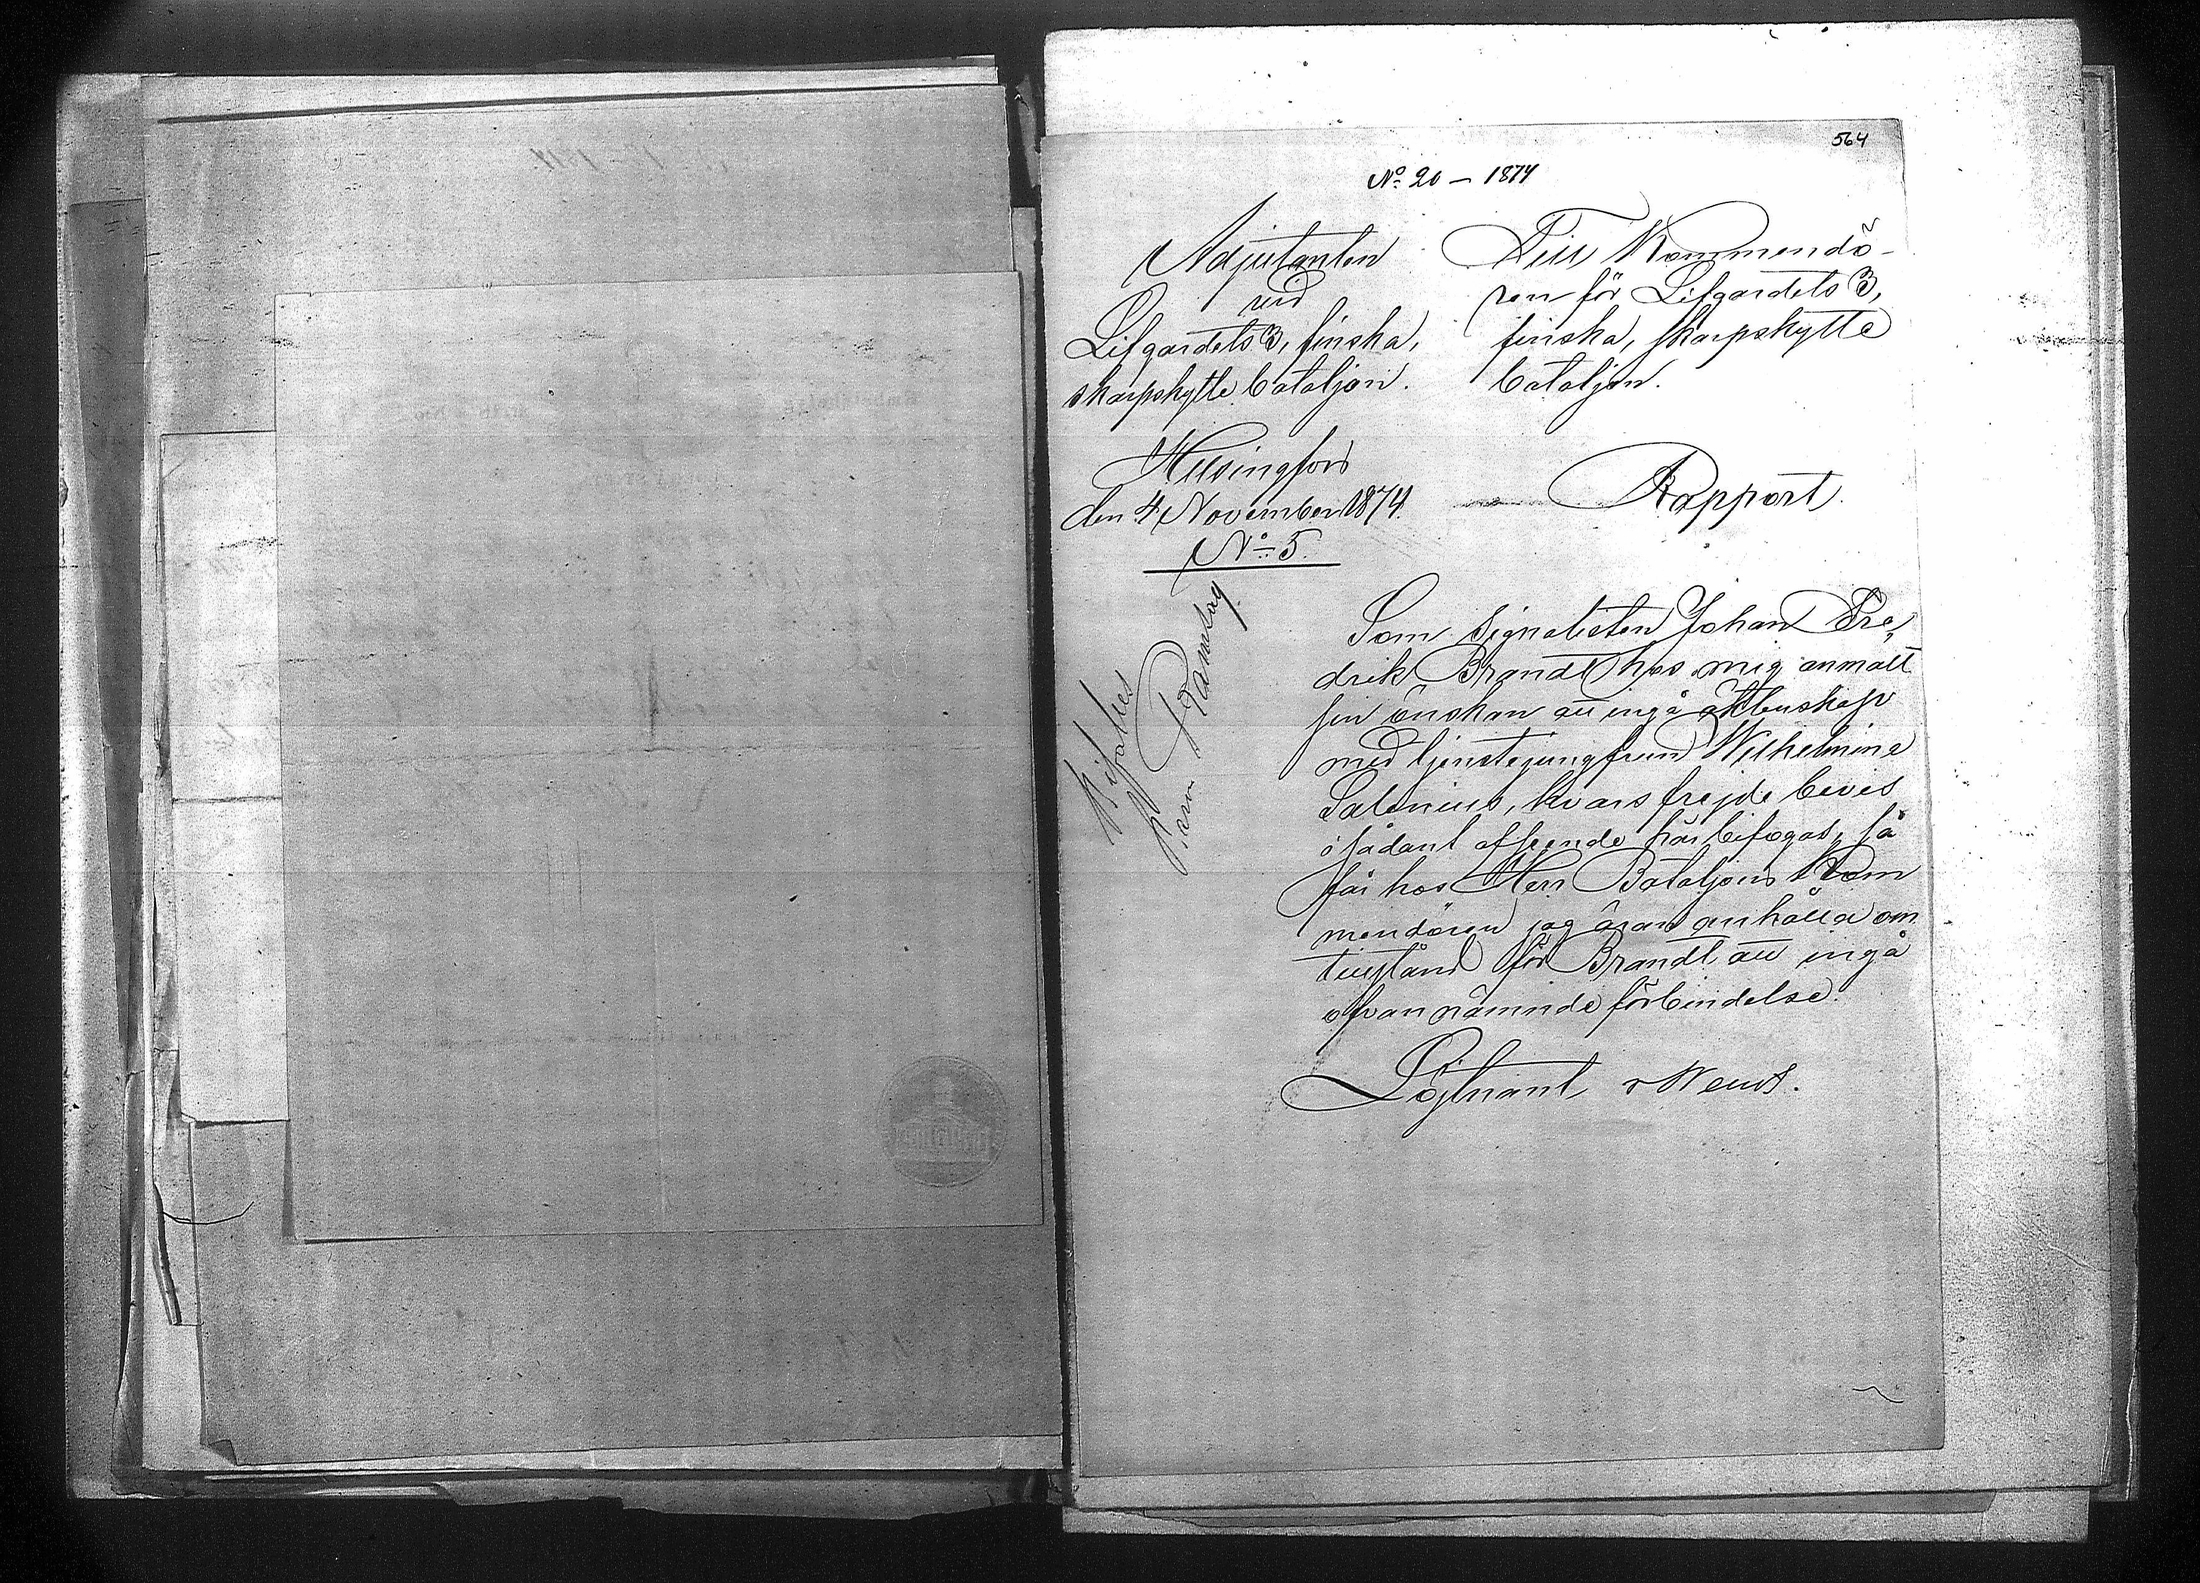 564
No 20 – 1874
Adjutanten
vid
Lifgardets 3, finska,
skarpskytte bataljon.
Helsingfors
den 4 November 1874.
No 5.
Till Kommendö-
ren för Lifgardets 3,
finska, skarpskytte
bataljon.
Rapport.
Som signalisten Johan Fre-
drik Brandt hos mig anmält
sin önskan att ingå äktenskap
med tjenstejungfrun Wilhelmina
Salenius, hvars frejde bevis
i sådant afseende här bifogas, så
får hos Herr Bataljons Kom
mendören jag äran anhålla om
tillstånd för Brandt att ingå
ofvannämnde förbindelse.
Löjtnant v Wendt.
Bifalles
Ramsay